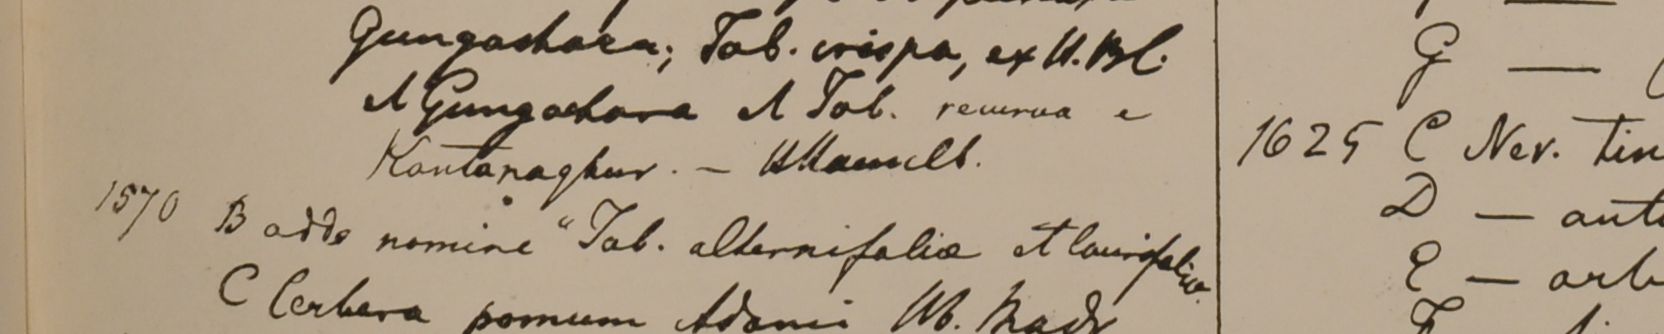 Gungachara; Tab. crispa, ex H. Bl.
et Gungachara et Tab. recurva e
Kantanaghur. — HHamilt.
1570 B adde nomine "Tab. alternifoliae et laurifoliae.
C Cerbera pomum Adami Hb. Madr
G —
1625 C Ner. Tin
D — ant
E — arb
F